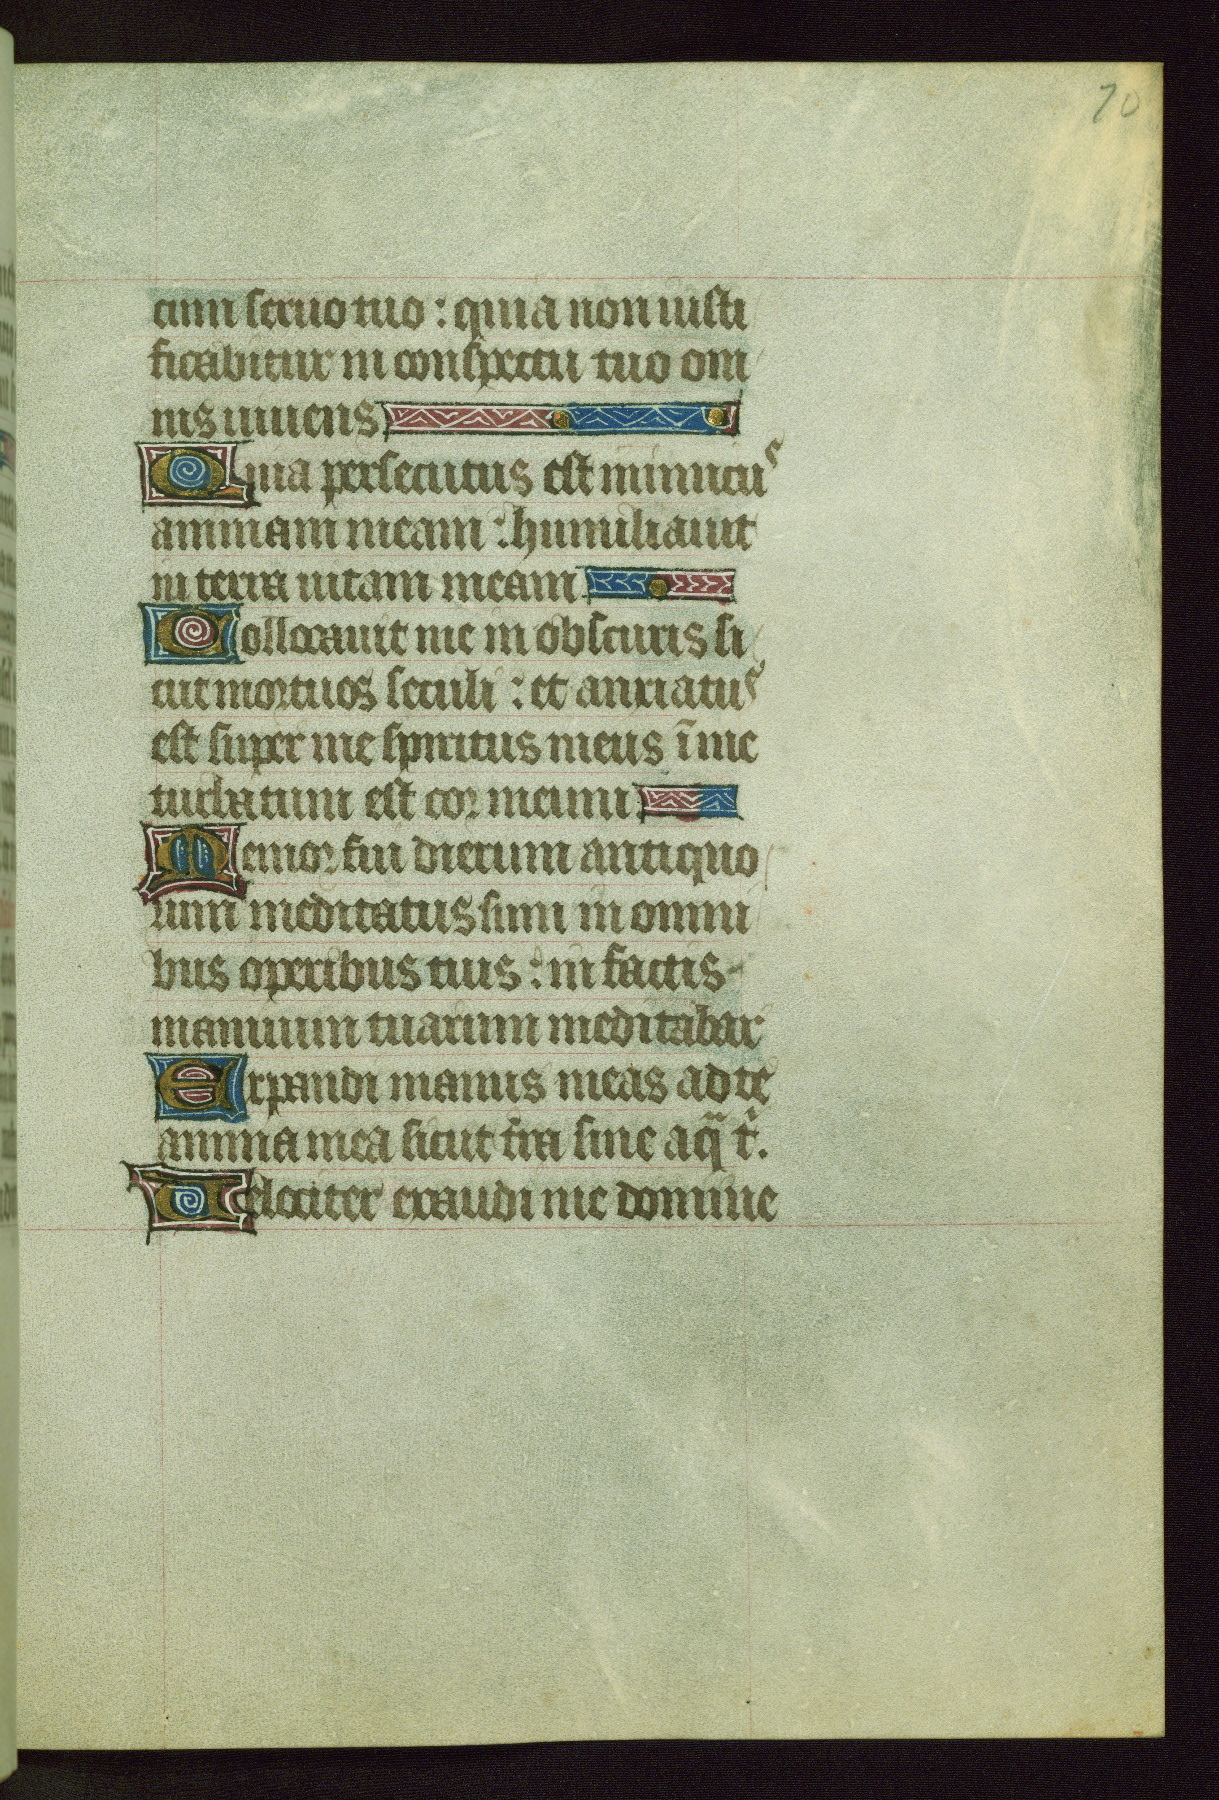 70
cum seruo tuo : quia non iusti
ficabitur in conspectu tuo om
nis uiuens
Quia persecutus est inimicus
animam meam : humiliauit
in terra uitam meam
Collocauit me in obscuris si
cut mortuos seculi : et anxiatus
est super me spiritus meus ī me
turbatum est cor meum
Memor fui dierum antiquo
rum meditatus sum in omni
bus operibus tuis : in factis
manuum tuarum meditabar
Expandi manus meas ad te
anima mea sicut t̃ra sine aq̃ t̃.
Uelociter exaudi me domine